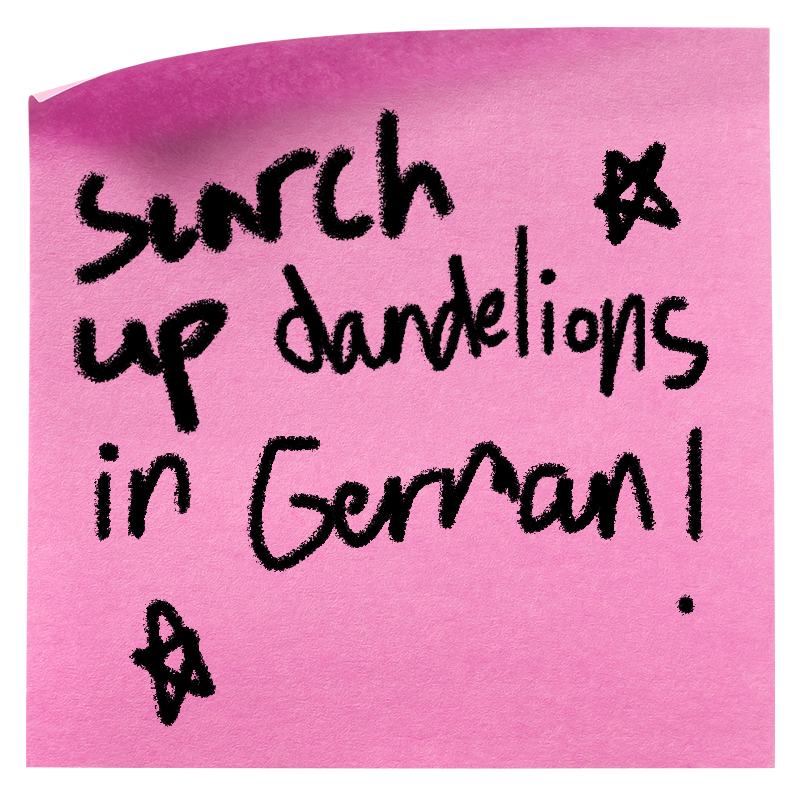 Search
up dandelions
in German!